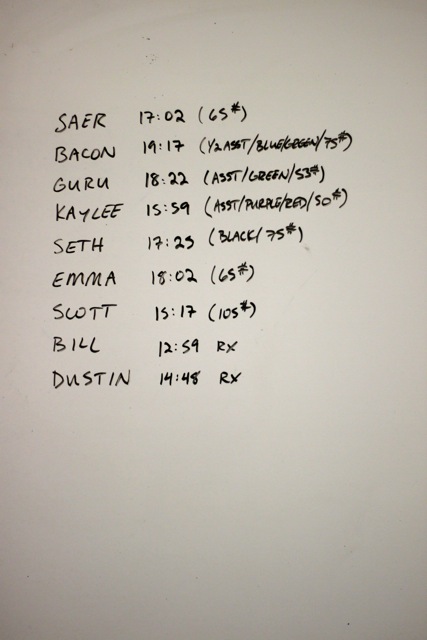 SAER 17:02 (65#)
BACON 19:17 (1/2 ASST/BLUE/GREEN/75#)
GURU 18:22 (ASST/GREEN/53#)
KAYLEE 15:59 (ASST/PURPLE/RED/50#)
SETH 17:25 (BLACK/75#)
EMMA 18:02 (65#)
SCOTT 15:17 (105#)
BILL 12:59 RX
DUSTIN 14:48 RX